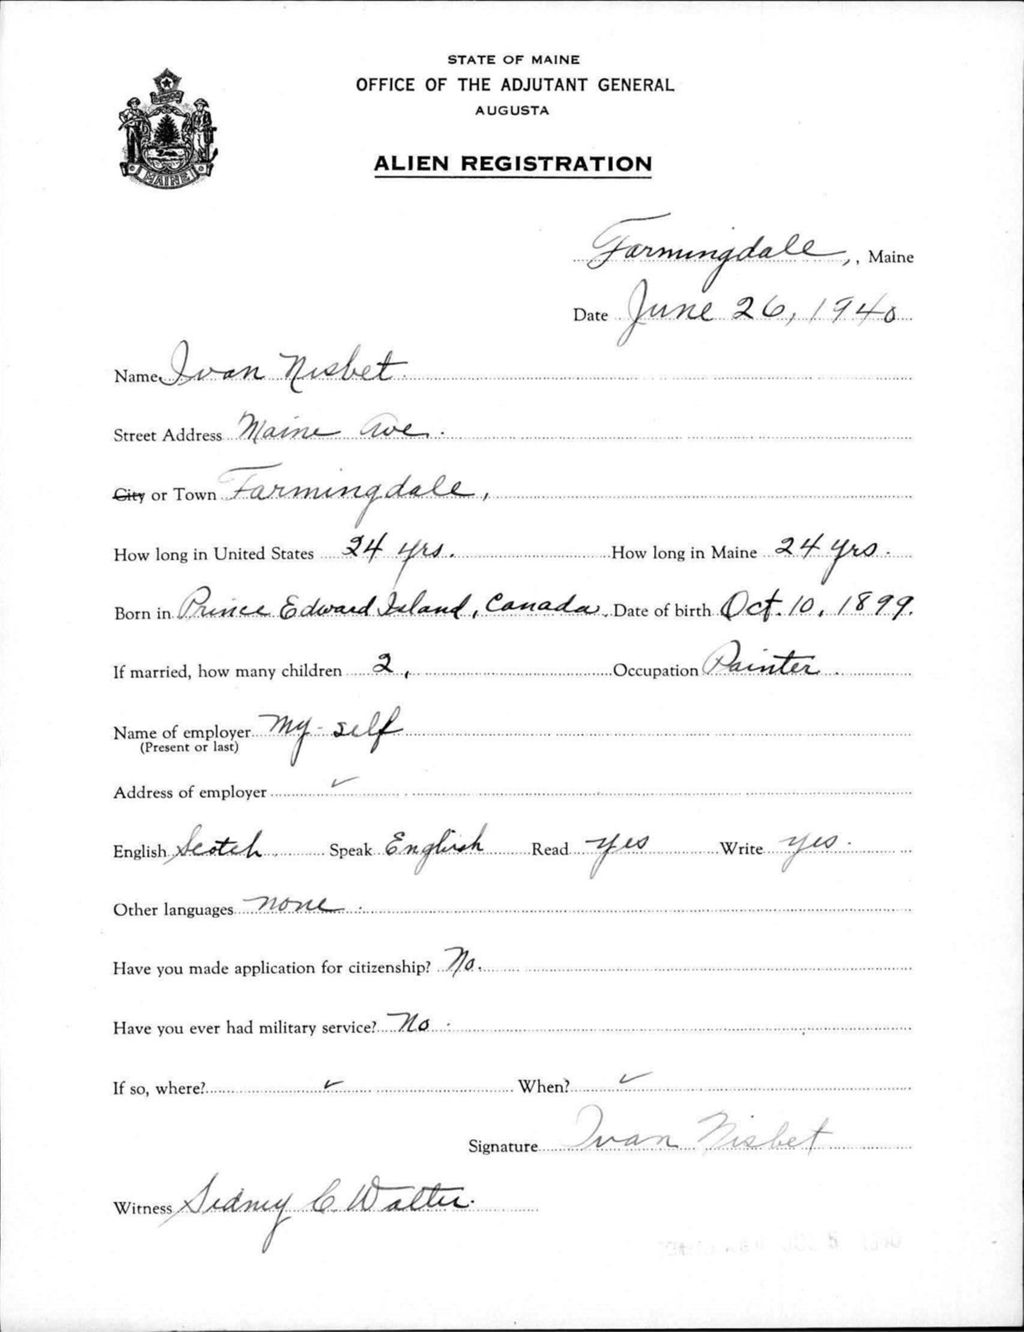 STATE OF MAINE
OFFICE OF THE ADJUTANT GENERAL
AUGUSTA
ALIEN REGISTRATION
MAINE
Farmingdale, , Maine
Date June 26, 1940
Name Ivan Nisbet.
Street Address Maine Ave.
City or Town Farmingdale,
How long in United States 24 yrs. How long in Maine 24 yrs.
Born in Prince Edward Island, Canada. Date of birth Oct. 10, 1899.
If married, how many children 2, Occupation Painter.
Name of employer My-self
(Present or last)
Address of employer ✓
English Scotch Speak English Read yes Write yes.
Other languages none.
Have you made application for citizenship? No.
Have you ever had military service? No.
If so, where? ✓ When? ✓
Signature Ivan Nisbet
Witness Sidney C. Walter.